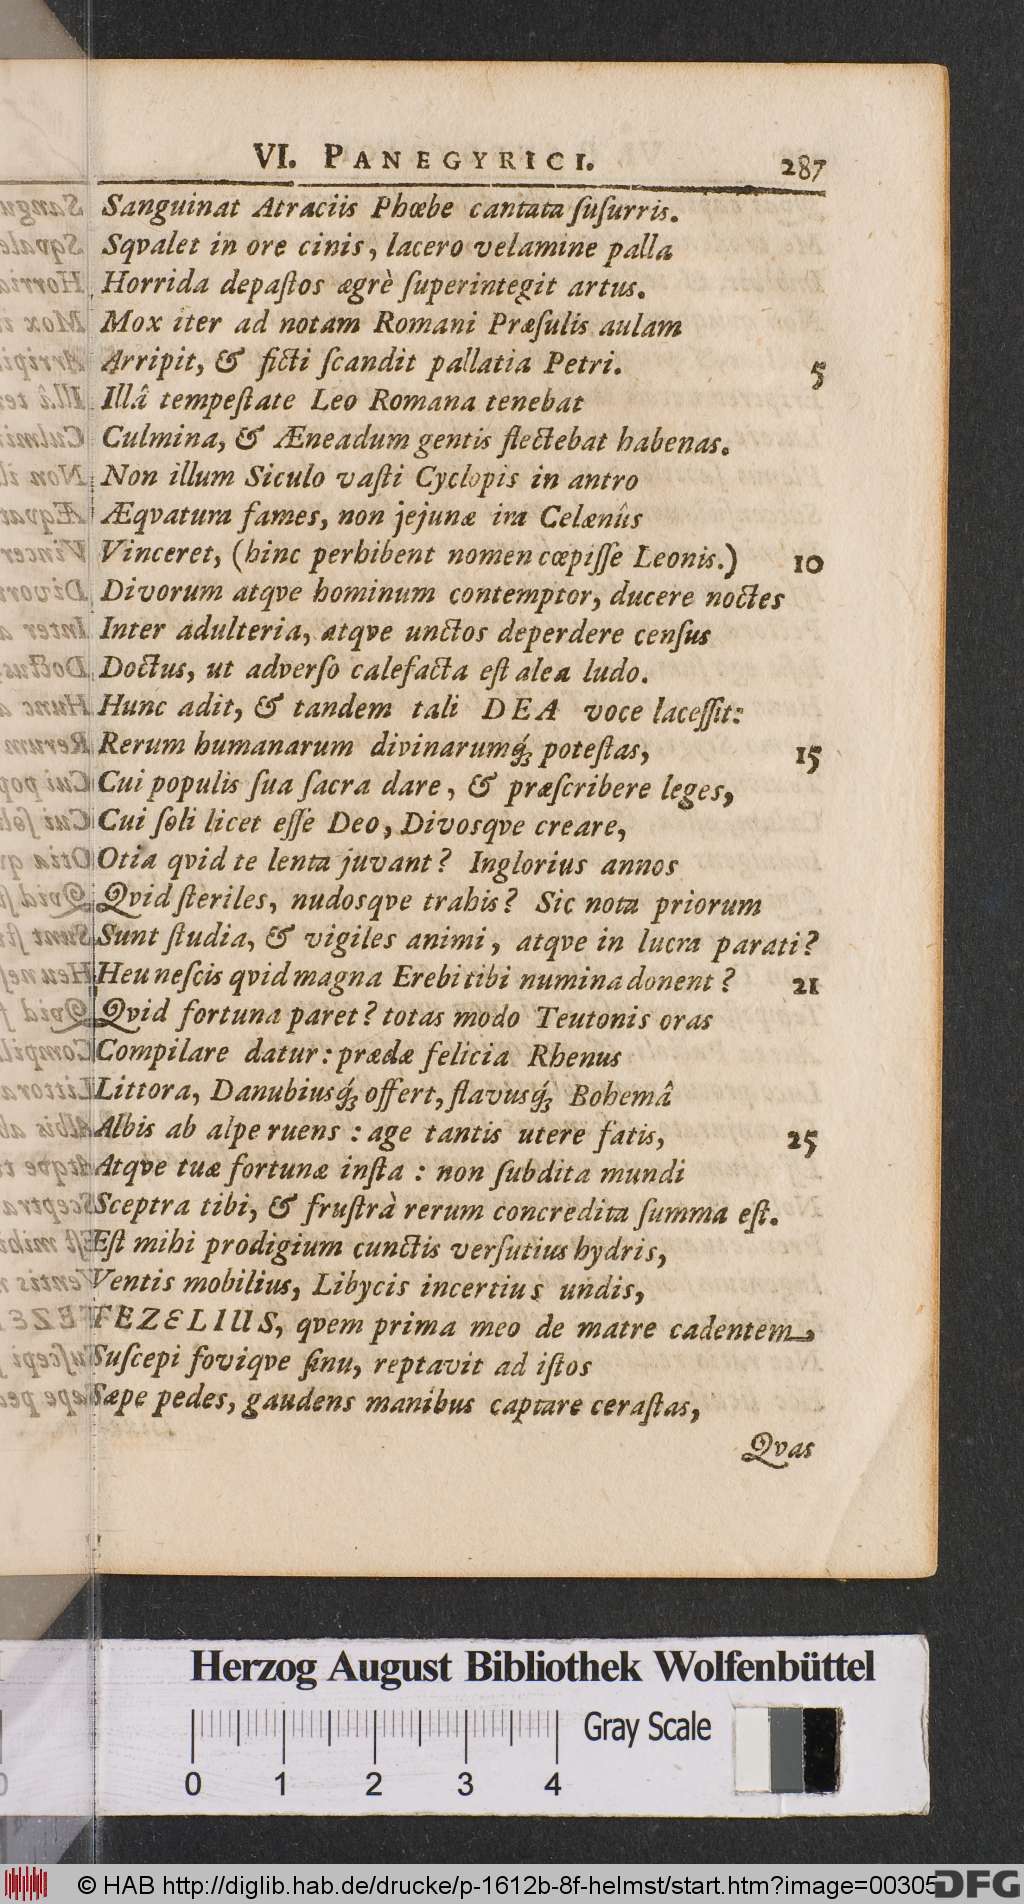 VI. PANEGYRICI. 287
Sanguinat Atraciis Phœbe cantata ſuſurris.
Sqvalet in ore cinis, lacero velamine palla
Horrida depaſtos ægrè ſuperintegit artus.
Mox iter ad notam Romani Præſulis aulam
Arripit, & ficti ſcandit pallatia Petri. 5
Illâ tempeſtate Leo Romana tenebat
Culmina, & Æneadum gentis flectebat habenas.
Non illum Siculo vaſti Cyclopis in antro
Æqvatura fames, non jejunæ ira Celænûs
Vinceret, (hinc perhibent nomen cœpiſſe Leonis.) 10
Divorum atqve hominum contemptor, ducere noctes
Inter adulteria, atqve unctos deperdere cenſus
Doctus, ut adverſo calefacta eſt alea ludo.
Hunc adit, & tandem tali DEA voce laceſſit:
Rerum humanarum divinarumq́; poteſtas, 15
Cui populis ſua ſacra dare, & præſcribere leges,
Cui ſoli licet eſſe Deo, Divosqve creare,
Otia qvid te lenta juvant? Inglorius annos
Qvid ſteriles, nudosqve trahis? Sic nota priorum
Sunt ſtudia, & vigiles animi, atqve in lucra parati?
Heu neſcis qvid magna Erebi tibi numina donent? 21
Qvid fortuna paret? totas modo Teutonis oras
Compilare datur: prædæ felicia Rhenus
Littora, Danubiusq́; offert, flavusq́; Bohemâ
Albis ab alpe ruens : age tantis utere fatis, 25
Atqve tuæ fortunæ inſta : non ſubdita mundi
Sceptra tibi, & fruſtrà rerum concredita ſumma eſt.
Eſt mihi prodigium cunctis verſutius hydris,
Ventis mobilius, Libycis incertius undis,
TEZELIUS, qvem prima meo de matre cadentem
Suſcepi foviqve ſinu, reptavit ad iſtos
Sæpe pedes, gaudens manibus captare ceraſtas,
Qvas
Herzog August Bibliothek Wolfenbüttel
Gray Scale
0 1 2 3 4
© HAB http://diglib.hab.de/drucke/p-1612b-8f-helmst/start.htm?image=00305
DFG